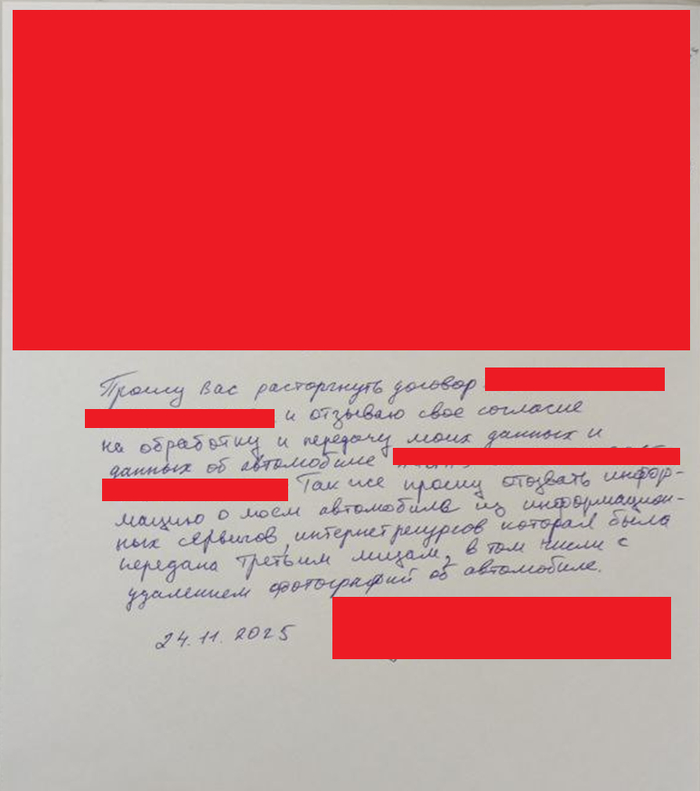 Прошу Вас расторгнуть договор
и отзываю свое согласие
на обработку и передачу моих данных и
данных об автомобиле
Так же прошу отозвать инфор-
мацию о моем автомобиле из информацион-
ных сервисов, интернет ресурсов которая была
передана третьим лицам, в том числе с
удалением фотографий об автомобиле.
24.11.2025